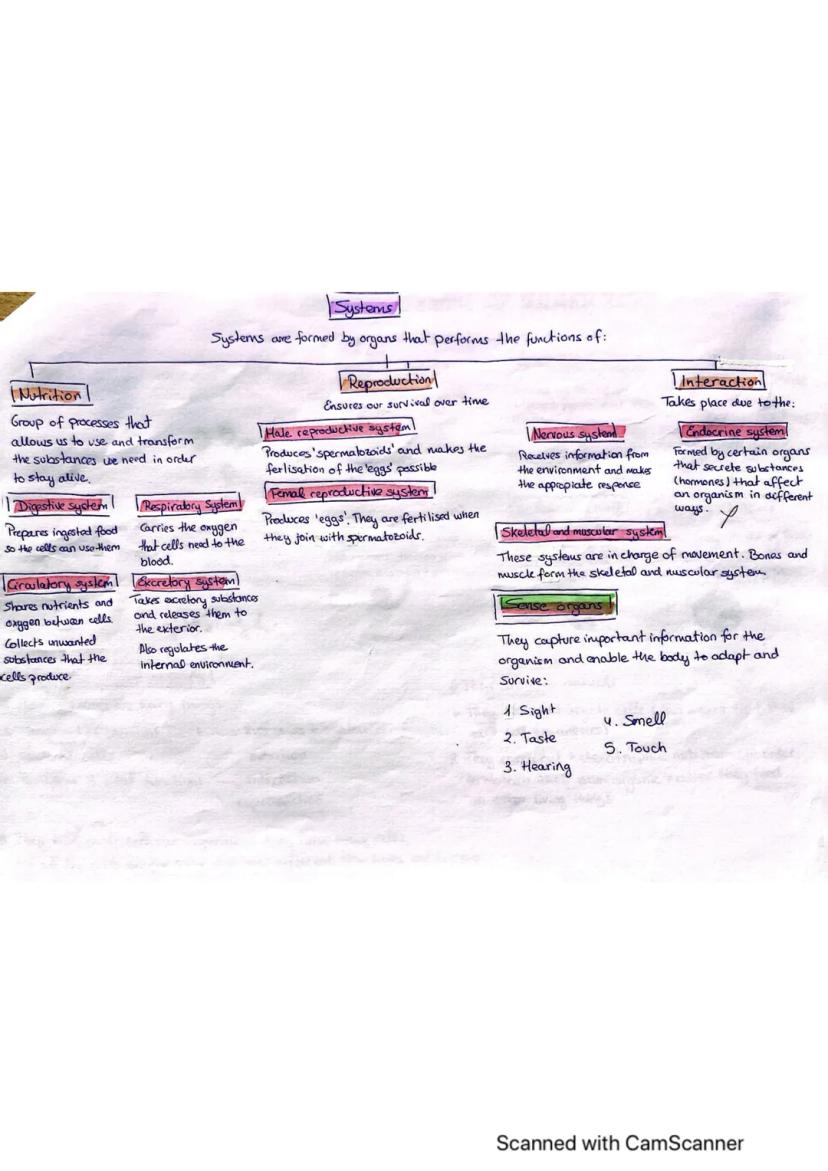 Systems
Systems are formed by organs that performs the functions of:
Nutrition
Group of processes that
allows us to use and transform
the substances we need in order
to stay alive.
Digestive system
Prepares ingested food
so the cells can use them
Respiratory System
Carries the oxygen
that cells need to the
blood.
Circulatory system
Shares nutrients and
oxygen between cells.
Collects unwanted
substances that the
cells produce.
Excretory system
Takes excretory substances
and releases them to
the exterior.
Also regulates the
internal environment.
Reproduction
Ensures our survival over time
Male reproductive system
Produces 'spermatozoids' and makes the
fertlisation of the 'eggs' possible
Femal reproductive system
Produces 'eggs'. They are fertilised when
they join with spermatozoids.
Interaction
Takes place due to the:
Nervous system
Receives information from
the environment and makes
the appropiate response
Endocrine system
Formed by certain organs
that secrete substances
(hormones) that affect
an organism in different
ways.
Skeletal and muscular system
These systems are in charge of movement. Bones and
muscle form the skeletal and muscular system.
Sense organs
They capture important information for the
organism and enable the body to adapt and
survive:
1. Sight
2. Taste
3. Hearing
4. Smell
5. Touch
Scanned with CamScanner